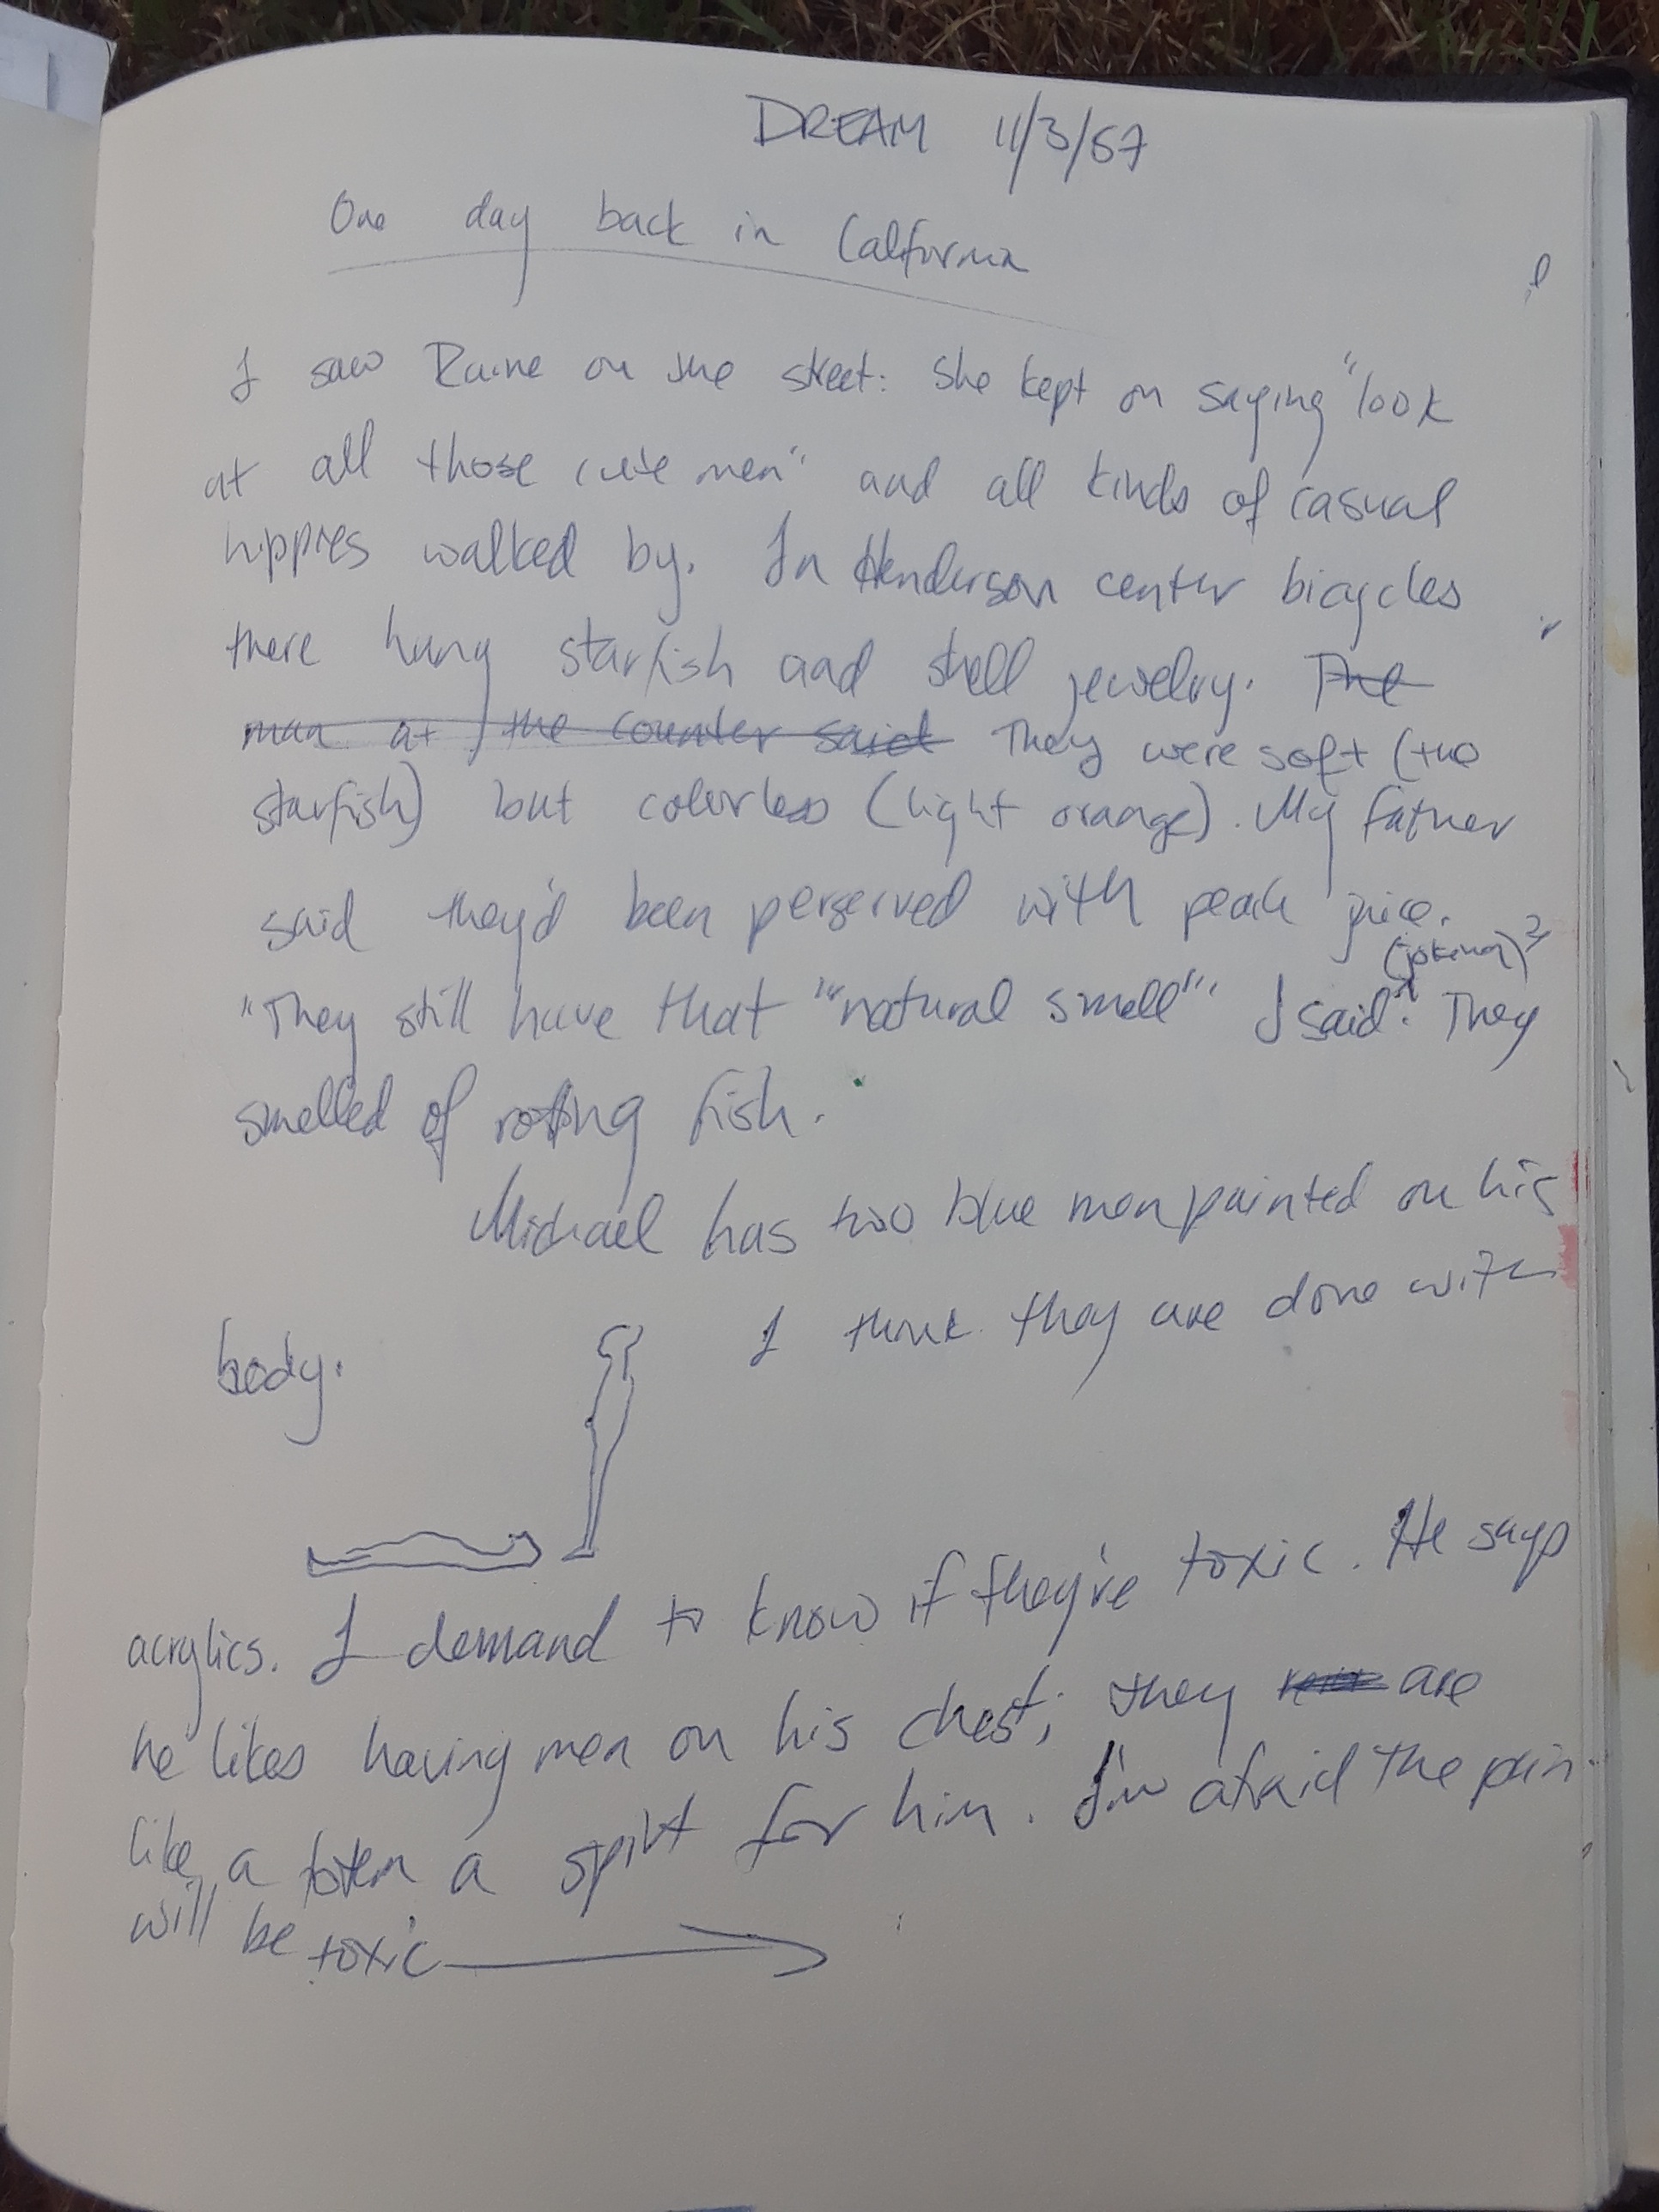 DREAM 11/3/87
One day back in California
I saw Raine on the street: she kept on saying "look
at all those cute men" and all kinds of casual
hippies walked by. In Henderson center bicycles
there hung starfish and shell jewelry. The
man at the counter said They were soft (the
starfish) but colorless (light orange). My father
said they'd been perserved with peach juice.
(joking)
"They still have that "'natural smell"' I said. They
smelled of rotting fish.
Michael has two blue men painted on his
body. I think they are done with
acrylics. I demand to know if they're toxic. He says
he likes having men on his chest; they are
like a totem a spirit for him. I'm afraid the pain
will be toxic